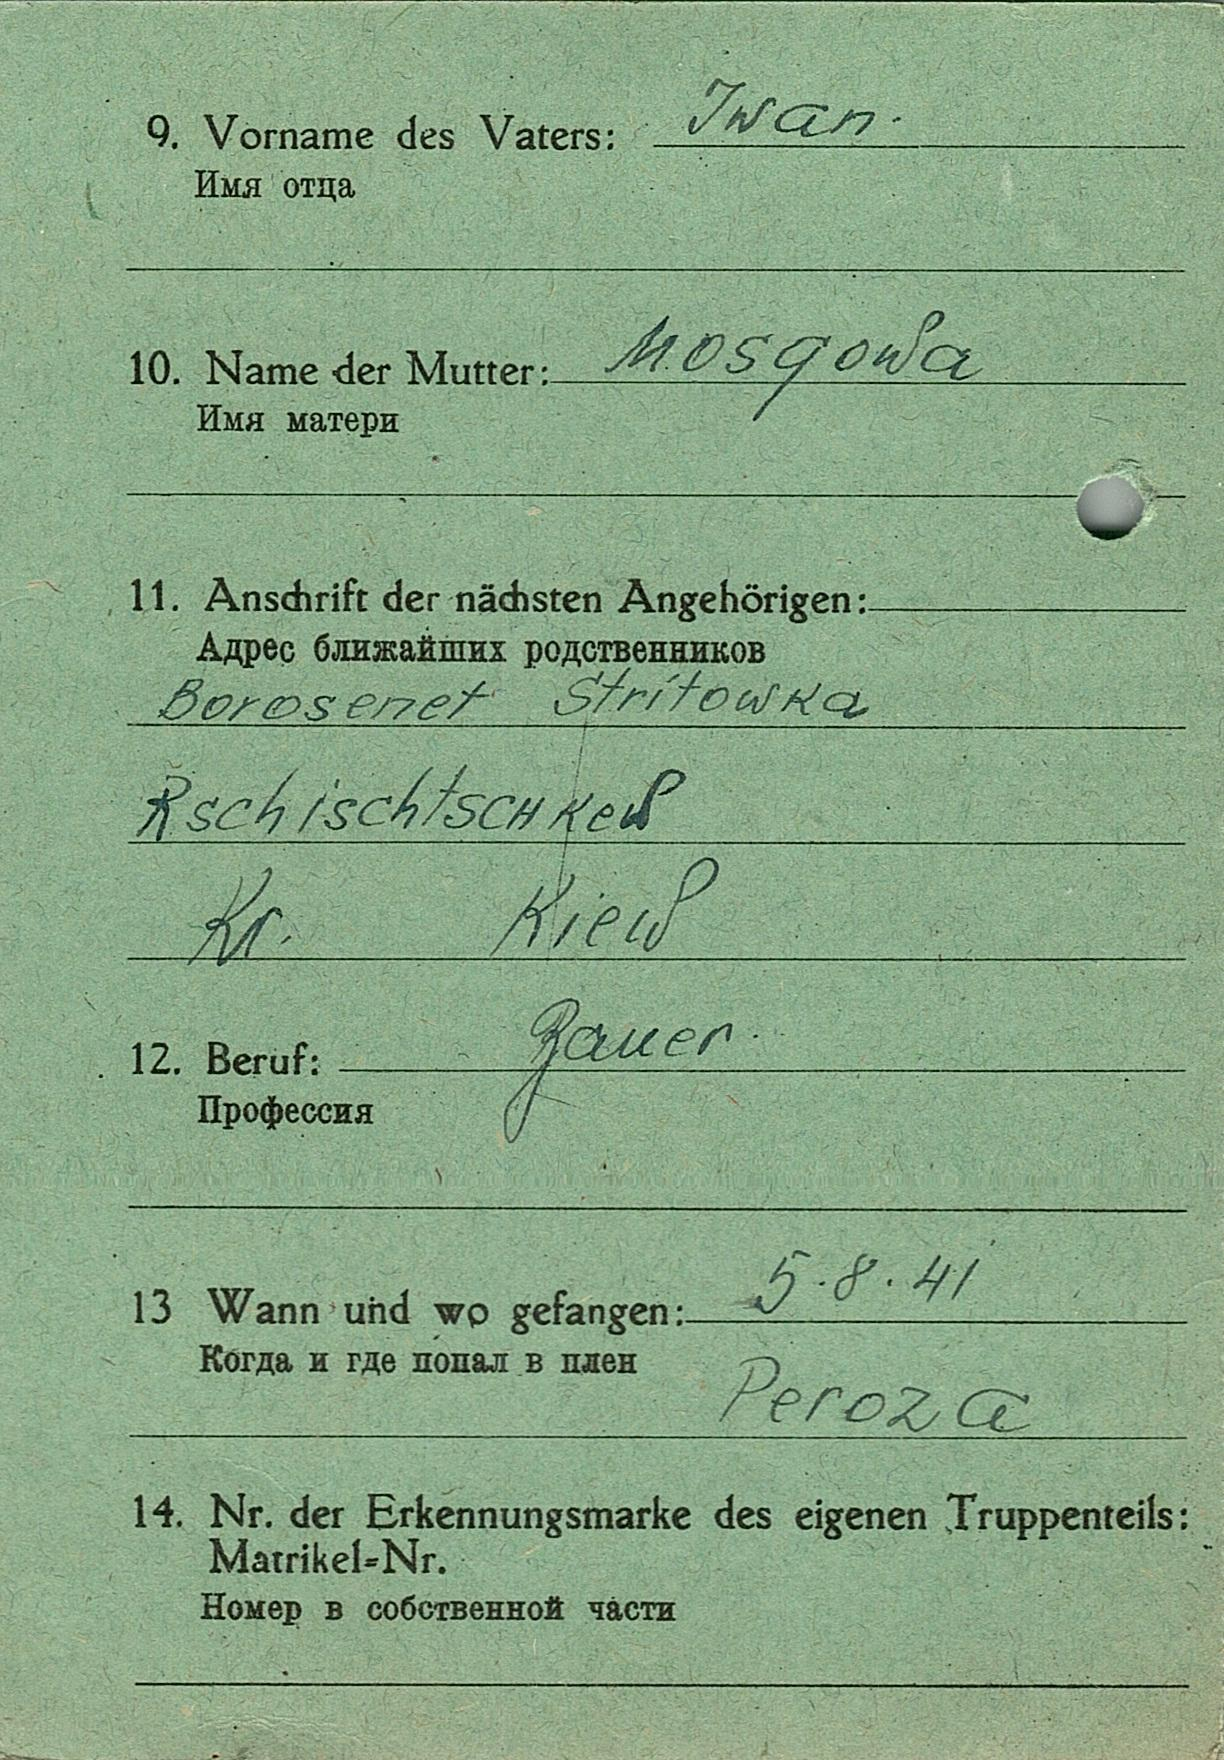 9. Vorname des Vaters: Iwan.
Имя отца
10. Name der Mutter: Mosgowa
Имя матери
11. Anschrift der nächsten Angehörigen:
Адрес ближайших родственников
Borosenet Stritowka
Rschischtschkew
Kr. Kiew
12. Beruf: Bauer.
Профессия
13 Wann und wo gefangen: 5.8.41
Когда и где попал в плен
Peroza
14. Nr. der Erkennungsmarke des eigenen Truppenteils:
Matrikel=Nr.
Номер в собственной части